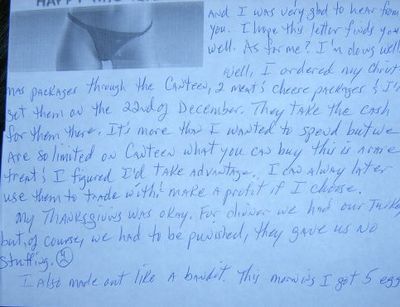 And I was very glad to hear from
you. I hope this letter finds you
well. As for me? I'm doing well
Well, I ordered my Christ
mas packages through the Canteen, 2 meat & cheese packages & I'll
get them on the 22nd of December. They take the cash
for them there. It's more than I wanted to spend but we
are so limited on Canteen what you can buy this is a rare
treat & I figured I'd take advantage. I can alway later
use them to trade with & make a profit if I choose.
My Thanksgivins was okay. For dinner we had our Turkey
but, of course, we had to be punished, they gave us no
stuffing. ☹
I also made out like a bandit. This morning I got 5 egg